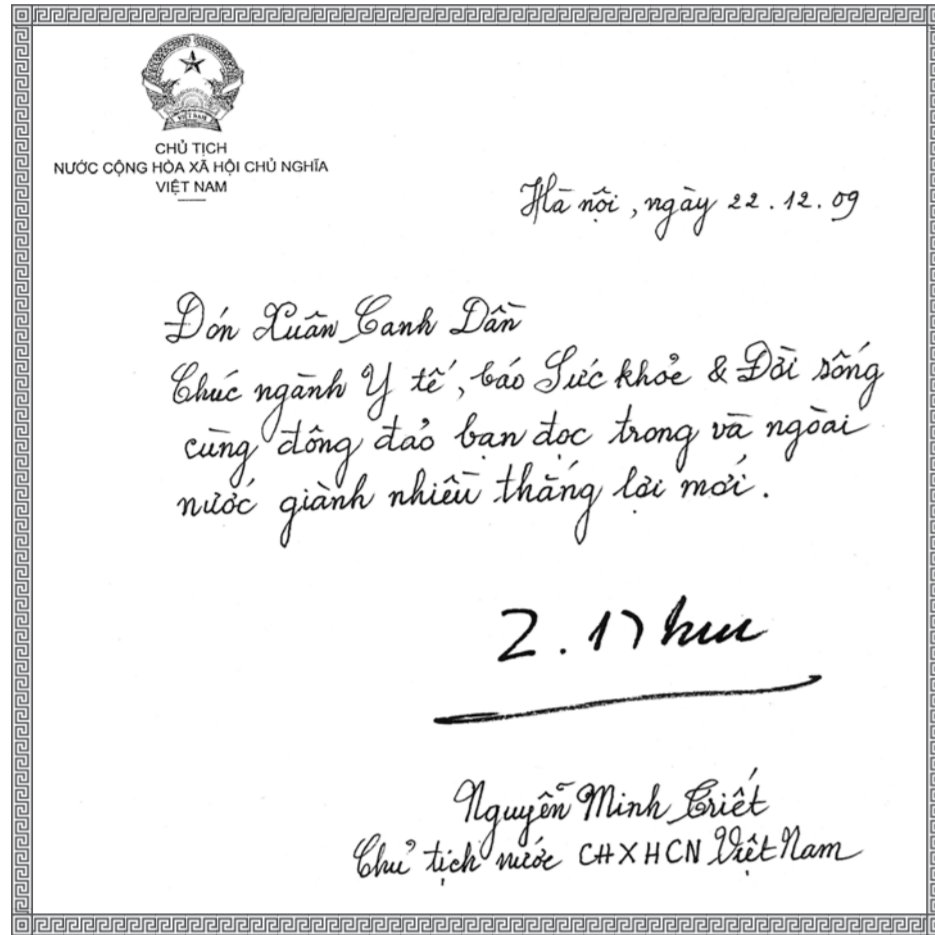 VIỆT NAM
CHỦ TỊCH
NƯỚC CỘNG HÒA XÃ HỘI CHỦ NGHĨA
VIỆT NAM
Hà nội, ngày 22.12.09
Đón Xuân Canh Dần
Chúc ngành Y tế, báo Sức khỏe & Đời sống
cùng đông đảo bạn đọc trong và ngòai
nước giành nhiều thắng lợi mới.
Nguyễn Minh Triết
Chủ tịch nước CHXHCN Việt Nam